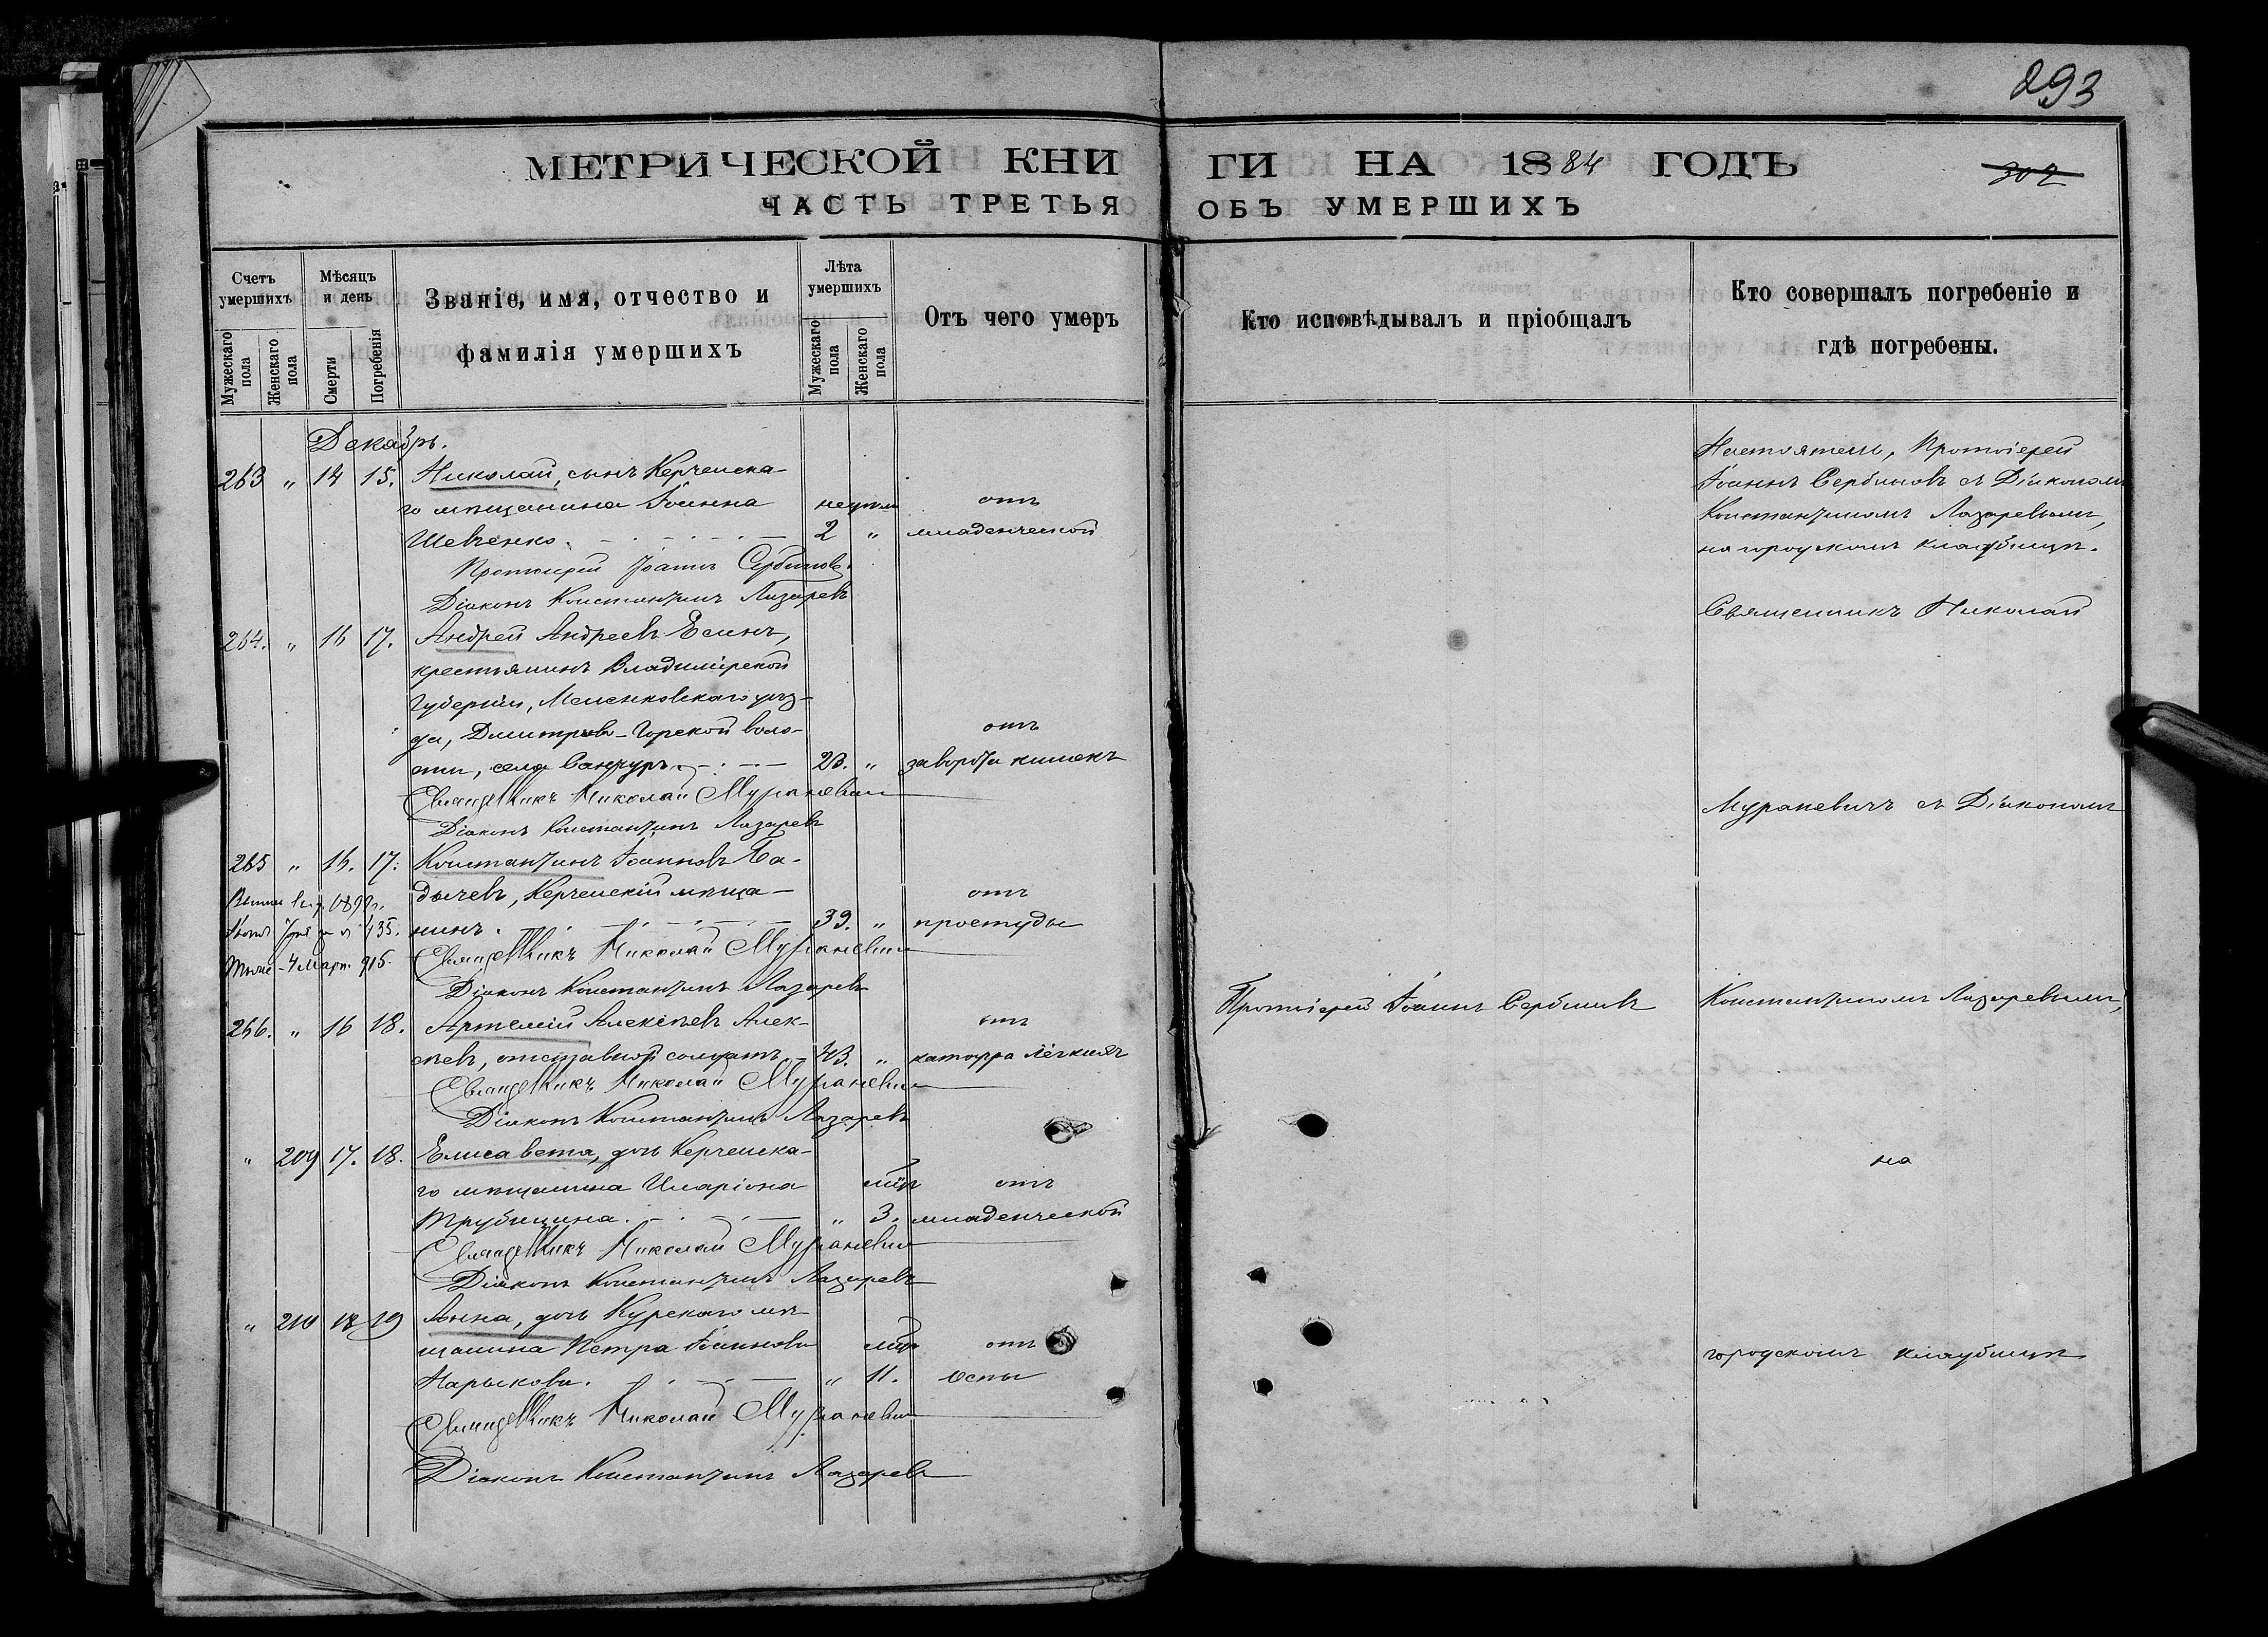 293
МЕТРИЧЕСКОЙ КНИГИ НА 1884 ГОДЪ
302
ЧАСТЬ ТРЕТЬЯ ОБЪ УМЕРШИХЪ
Счетъ умершихъ
Мужескаго пола
Женскаго пола
Мѣсяцъ и день
Смерти
Погребенія
Званіе, имя, отчество и
фамилія умершихъ
Лѣта умершихъ
Мужескаго пола
Женскаго пола
Отъ чего умеръ
Кто исповѣдывалъ и пріобщалъ
Кто совершалъ погребеніе и
гдѣ погребены.
Декабрь.
263 " 14 15. Николай, сынъ Керченска-
го мѣщанина Іоанна отъ
Шевченко. 2 " младенческой
Протоіерей Іоаннъ Сербиновъ.
Діаконъ Константинъ Лазаревъ
264. " 16 17. Андрей Андреевъ Есинъ,
крестьянинъ Владимірской
Губерніи, Меленковскаго уѣз-
да, Дмитріево-Горской воло- отъ
сти, села 23. " заворота кишекъ
Священникъ Николай Мураневичъ
Діаконъ Константинъ Лазаревъ
265 " 16. 17. Константинъ Іоанновъ Ба-
дычевъ, Керченскій мѣща- отъ
135. нинъ. 39. " простуды
4 Март. 915. Священникъ Николай Мураневичъ
Діаконъ Константинъ Лазаревъ
266. " 16 18. Артемій Алексѣевъ Алек- отъ
сѣевъ, отставной солдатъ 43. " катарра лёгкихъ
Священникъ Николай Мураневичъ
Діаконъ Константинъ Лазаревъ
" 209 17. 18. Елисавета, дочь Керченска-
го мѣщанина Иларіона отъ
Трубицина. " 3. младенческой
Священникъ Николай Мураневичъ
Діаконъ Константинъ Лазаревъ
" 210 18 19 Анна, дочь Курскаго мѣ-
щанина Петра Іоаннова отъ
Нарыкова. " 11. оспы
Священникъ Николай Мураневичъ
Діаконъ Константинъ Лазаревъ
Протоіерей Іоаннъ Сербиновъ
Настоятель, Протоіерей
Іоаннъ Сербиновъ съ Діакономъ
Константиномъ Лазаревымъ,
на городскомъ кладбищѣ.
Священникъ Николай
Мураневичъ съ Діакономъ
Константиномъ Лазаревымъ,
на
городскомъ кладбищѣ